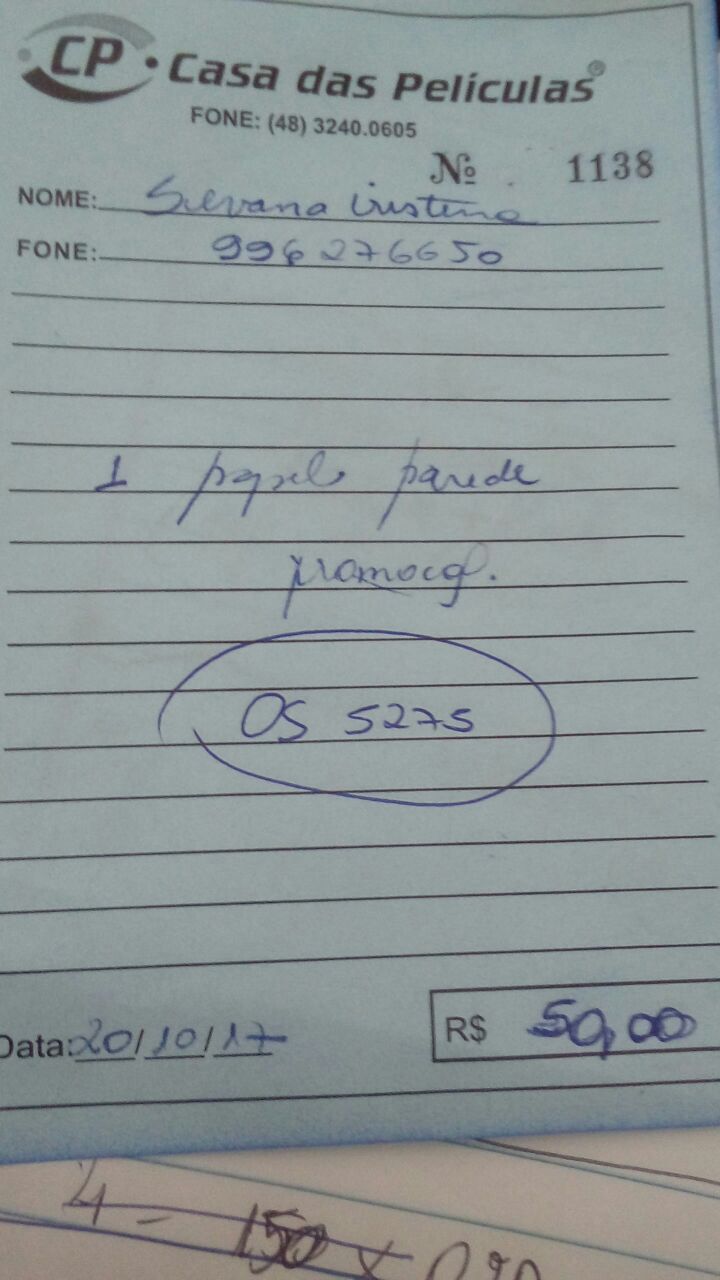 CP • Casa das Películas®
FONE: (48) 3240.0605
Nº 1138
NOME: Silvana Cristina
FONE: 996276650
1 papel parede
OS 5275
Data: 20/10/17
R$ 50,00
4 - 150 x